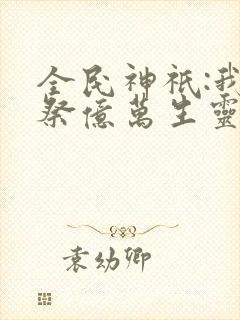 全民神祇:我
祭億萬生靈
袁幼卿